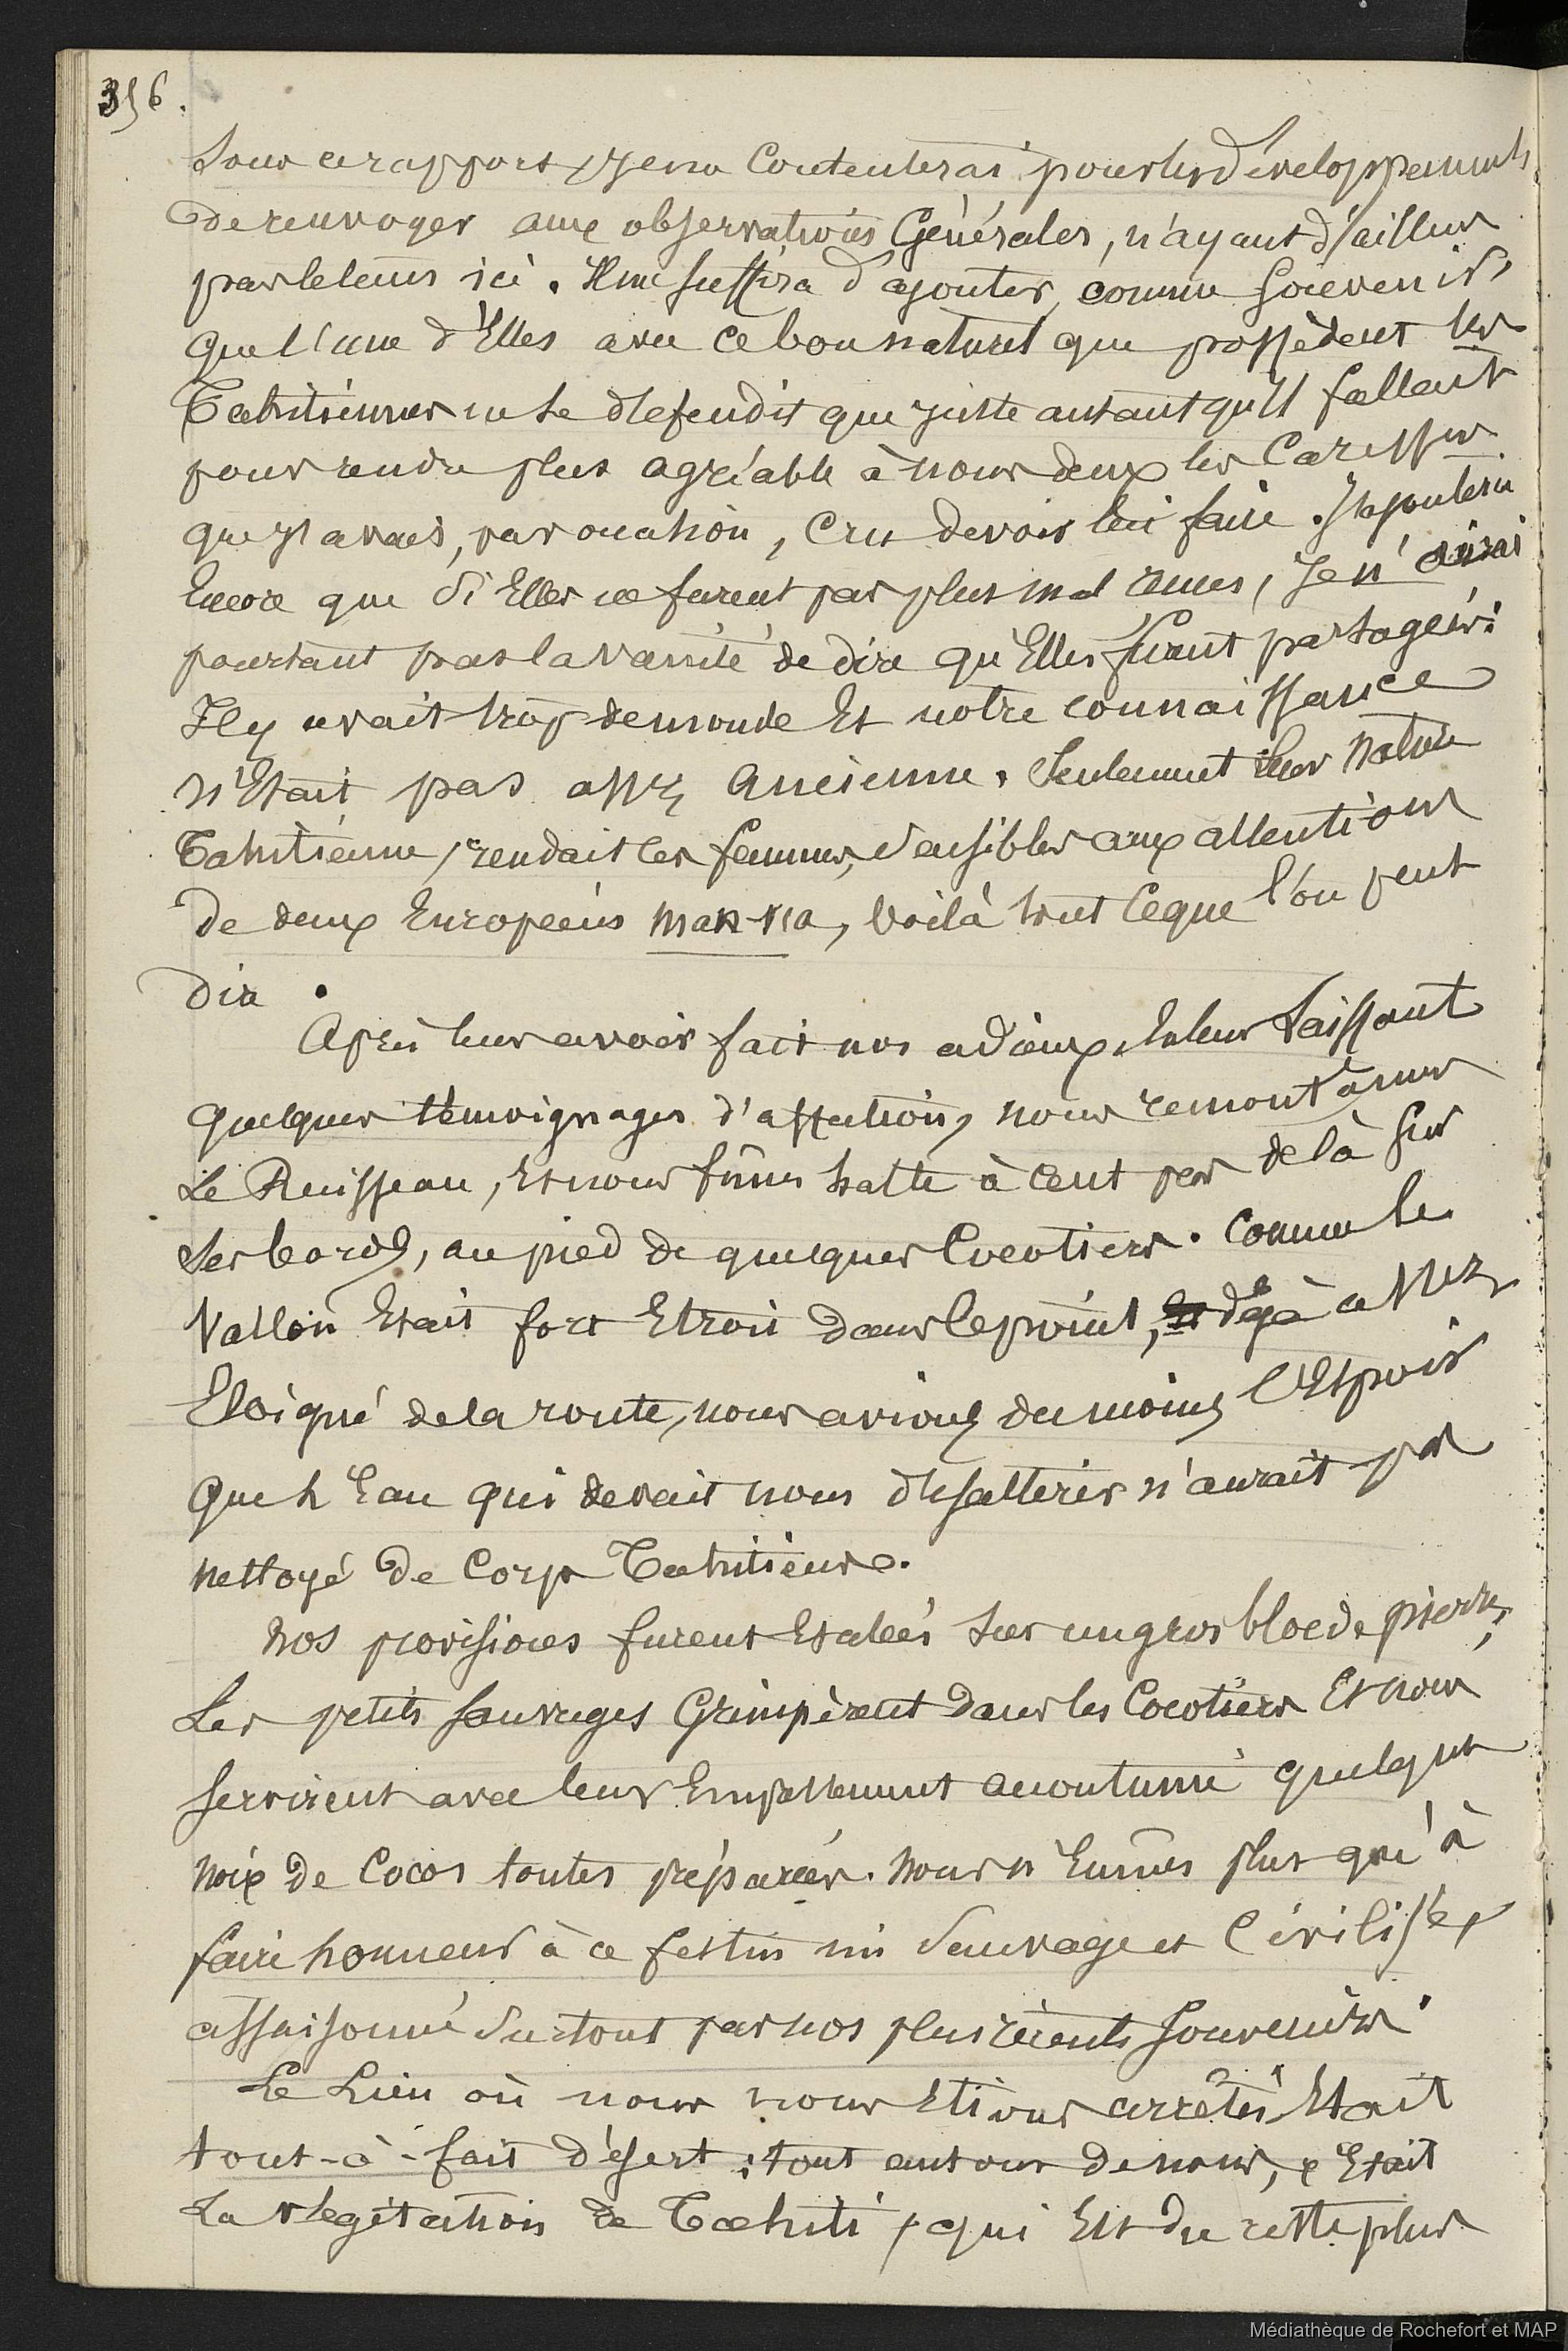 356.
Sous ce rapport, je me contenterai pour les développements
de renvoyer aux observations Générales, n'ayant d'ailleurs
pas le temps ici. Il me suffira d'ajouter, comme souvenir,
que l'une d'Elles avec ce bon naturel que possèdent les
Tahitiennes ne se défendit que juste autant qu'il fallait
pour rendre plus agréable à nous deux les Caresses
que j'avais, par occasion, cru devoir lui faire. J'ajouterai
Encore que si Elles ne furent pas plus mal reçues, je n'aurai
pourtant pas la vanité de dire qu'Elles furent partagées:
Il y avait trop de monde Et notre connaissance
n'Etait pas assez Ancienne. Seulement leur nature
Tahitienne, rendait les femmes, sensibles aux attentions
de deux Européens, Voilà tout ce que l'on peut
dire.
Après leur avoir fait nos adieux, En leur Laissant
quelques témoignages d'affection, nous remontâmes
Le Ruisseau, Et nous fîmes halte à cent pas de là sur
Ses bords, au pied de quelques Cocotiers. Comme le
Vallon Etait fort Etroit dans le point, déjà assez
Eloigné de la route, nous avions du moins l'Espoir
que l'Eau qui devait nous désaltérer n'aurait pas
nettoyé de Corps Tahitiens.
Nos provisions furent Etalées sur un gros bloc de pierre,
Les petits sauvages Grimpèrent dans les Cocotiers Et nous
servirent avec leur Empressement accoutumé quelques
noix de Cocos toutes préparées. Nous n'Eûmes plus qu'à
faire honneur à ce festin mi sauvage et Civilisé,
assaisonné surtout par nos plus récents souvenirs.
Le Lieu où nous nous Etions arrêtés, Etait
tout-à-fait désert; tout autour de nous, c'Etait
La végétation de Tahiti, qui Est du reste plus
Médiathèque de Rochefort et MAP